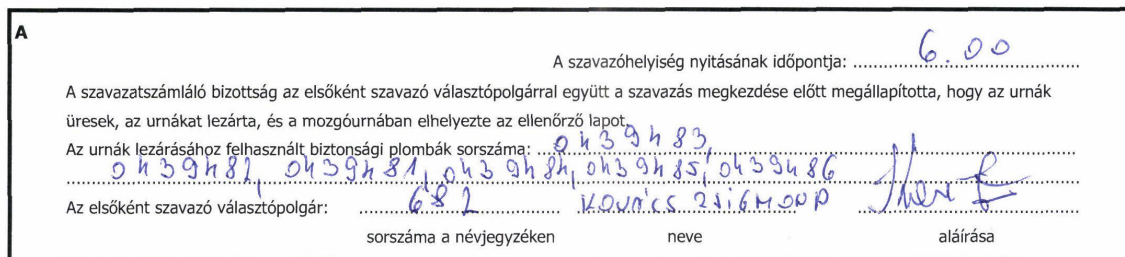 A
A szavazóhelyiség nyitásának időpontja: 6.00
A szavazatszámláló bizottság az elsőként szavazó választópolgárral együtt a szavazás megkezdése előtt megállapította, hogy az urnák
üresek, az urnákat lezárta, és a mozgóurnában elhelyezte az ellenőrző lapot.
Az urnák lezárásához felhasznált biztonsági plombák sorszáma: 0439483,
0439482, 0439481, 0439484, 0439485, 0439486
Az elsőként szavazó választópolgár: 682 KOVÁCS ZSIGMOND
sorszáma a névjegyzéken neve aláírása